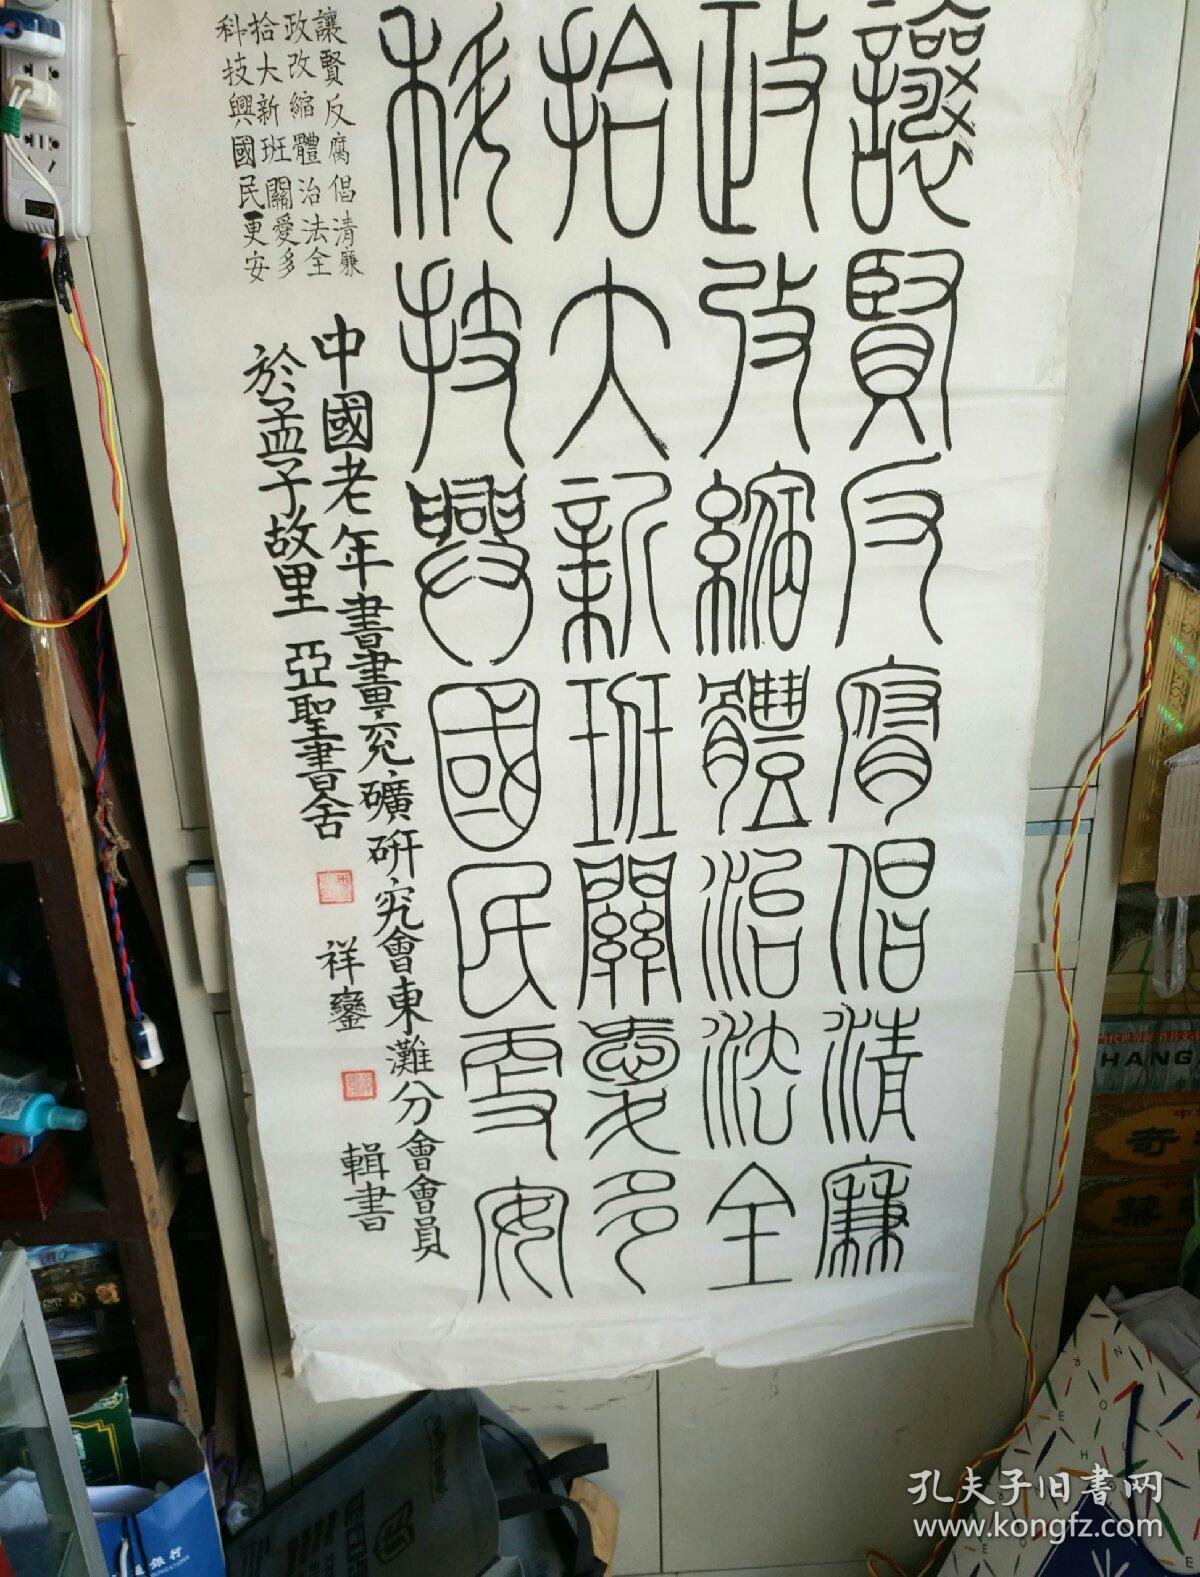 讓賢反腐倡清廉
政改縮體治法全
拾大新班關愛多
科技興國民更安
讓賢反腐倡清廉
政改縮體治法全
拾大新班關愛多
科技興國民更安
中國老年書畫兖礦研究會東灘分會會員
於孟子故里 亞聖書舍 祥鑾 輯書
孔夫子旧书网
www.kongfz.com